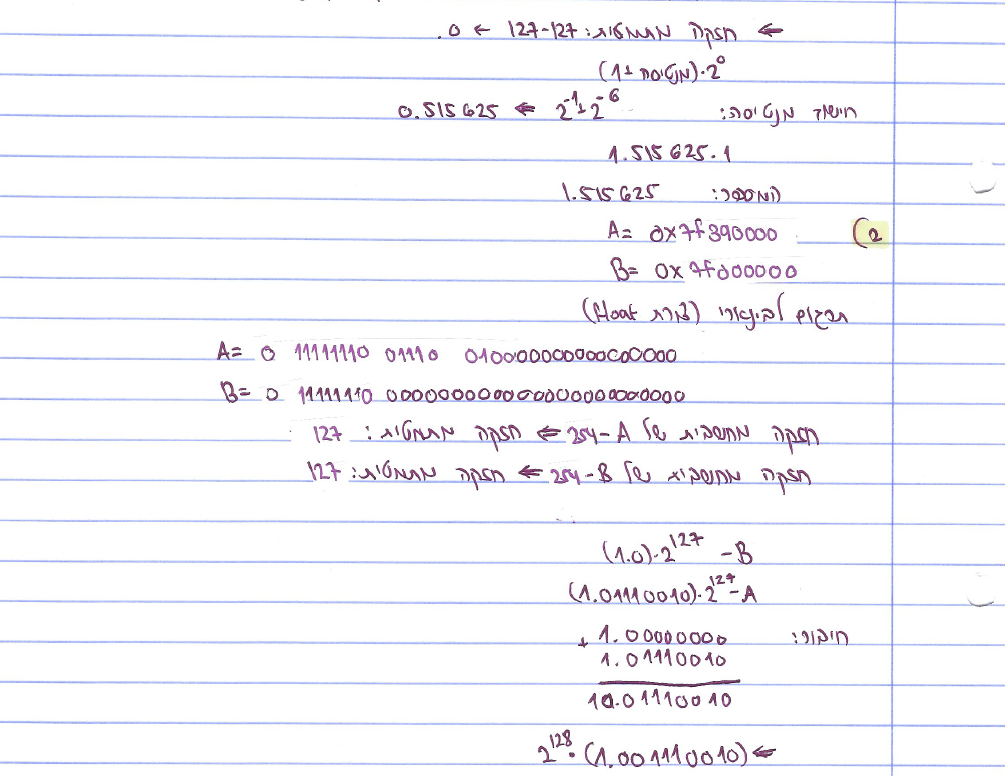 ⇐ חזקה מתמטית: 127-127 ← 0.
(1+מנטיסה)·2⁰
חישוב מנטיסה: 2⁻¹+2⁻⁶ ⇒ 0.515625
1.515625·1
המספר: 1.515625
(2 A= 0x7f390000
B= 0x7f000000
תרגום לבינארי (צורת float)
A= 0 11111110 01110 010000000000000000
B= 0 11111110 00000000000000000000000
חזקה מחשבית של A-254 ⇐ חזקה מתמטית: 127
חזקה מחשבית של B-254 ⇐ חזקה מתמטית: 127
(1.0)·2¹²⁷ -B
(1.01110010)·2¹²⁷-A
חיבור: + 1.00000000
1.01110010
10.01110010
2¹²⁸·(1.001110010) ⇐